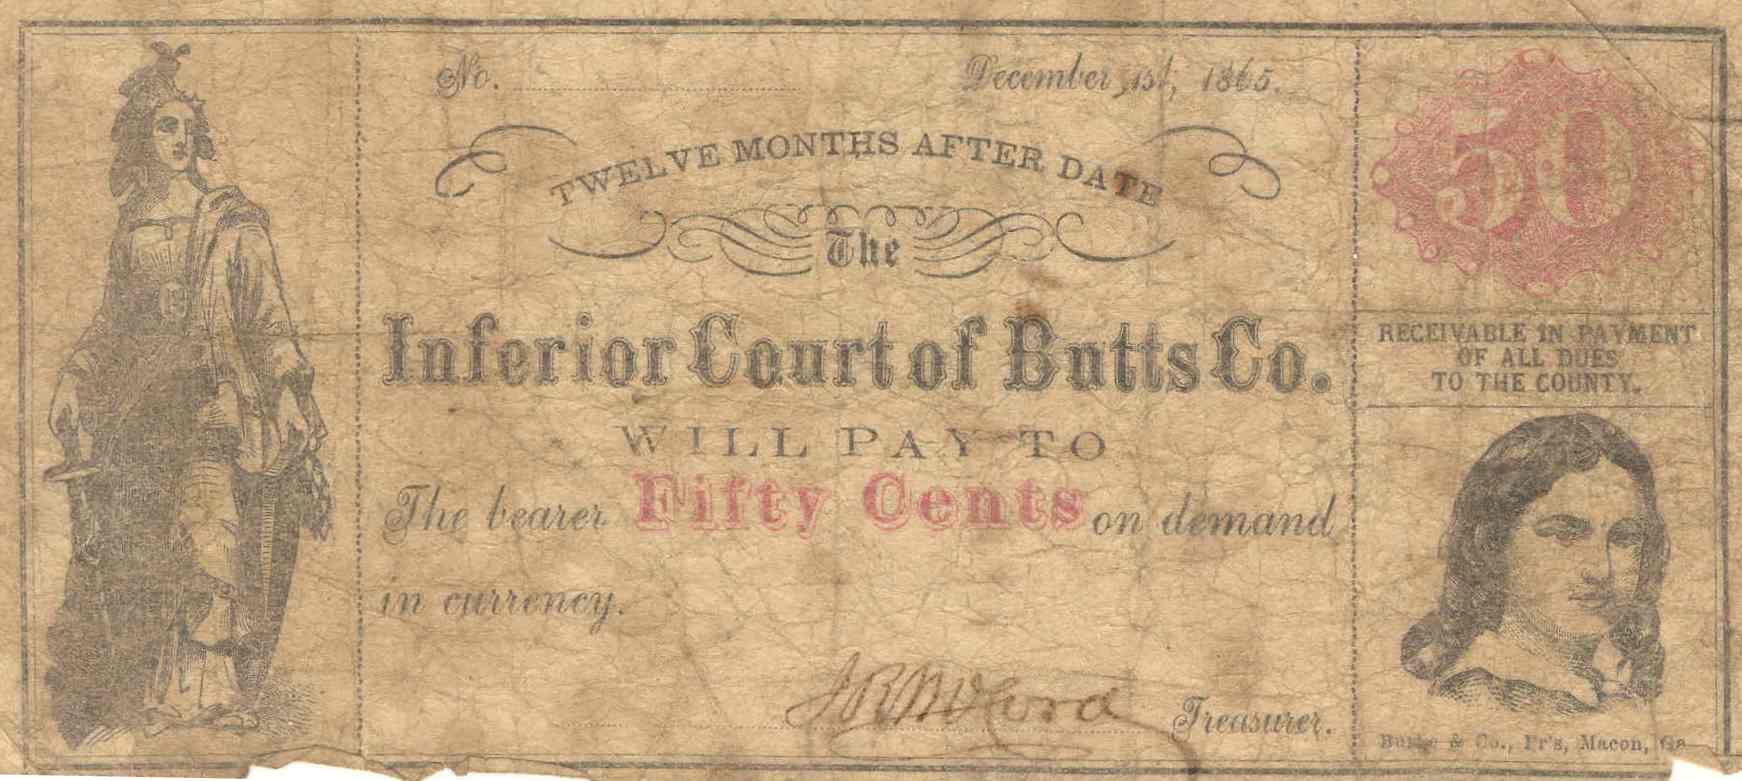 No.
December, 1st, 1865.
50
TWELVE MONTHS AFTER DATE
The
Inferior Court of Butts Co.
WILL PAY TO
The bearer Fifty Cents on demand
in currency.
Treasurer.
RECEIVABLE IN PAYMENT
OF ALL DUES
TO THE COUNTY.
Burke & Co., Pr's, Macon, Ga